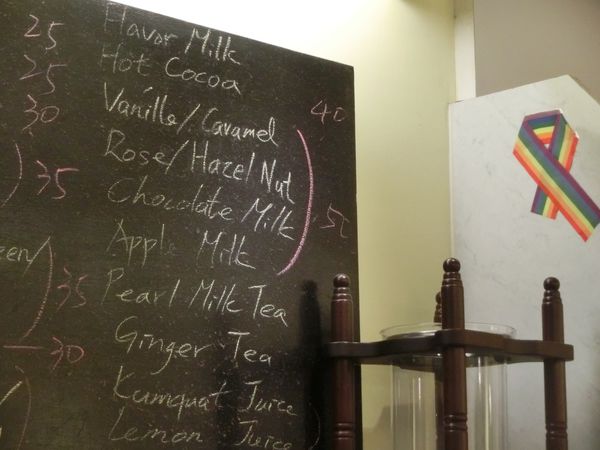 25 Flavor Milk
25 Hot Cocoa 40
30 Vanilla/Caramel
Rose/Hazel Nut
35 Chocolate Milk
Apple Milk
een
35 Pearl Milk Tea
30 Ginger Tea
Kumquat Juice
Lemon Juice